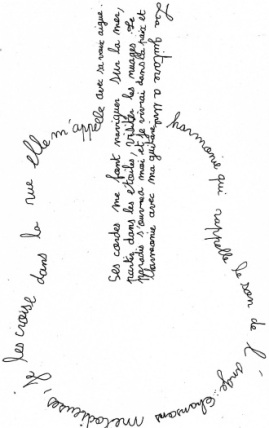 La guitare a une
harmonie qui rappelle le son de l'ange. Chansons mélodieuses, je les croise dans la rue elle m'appelle avec sa voix aigue.
Ses cordes me font naviguer sur la mer,
partir dans les étoiles visiter les nuages. Le
paradis s'ouvre a moi et je vivrai dans la paix et
l'harmonie avec ma guitare